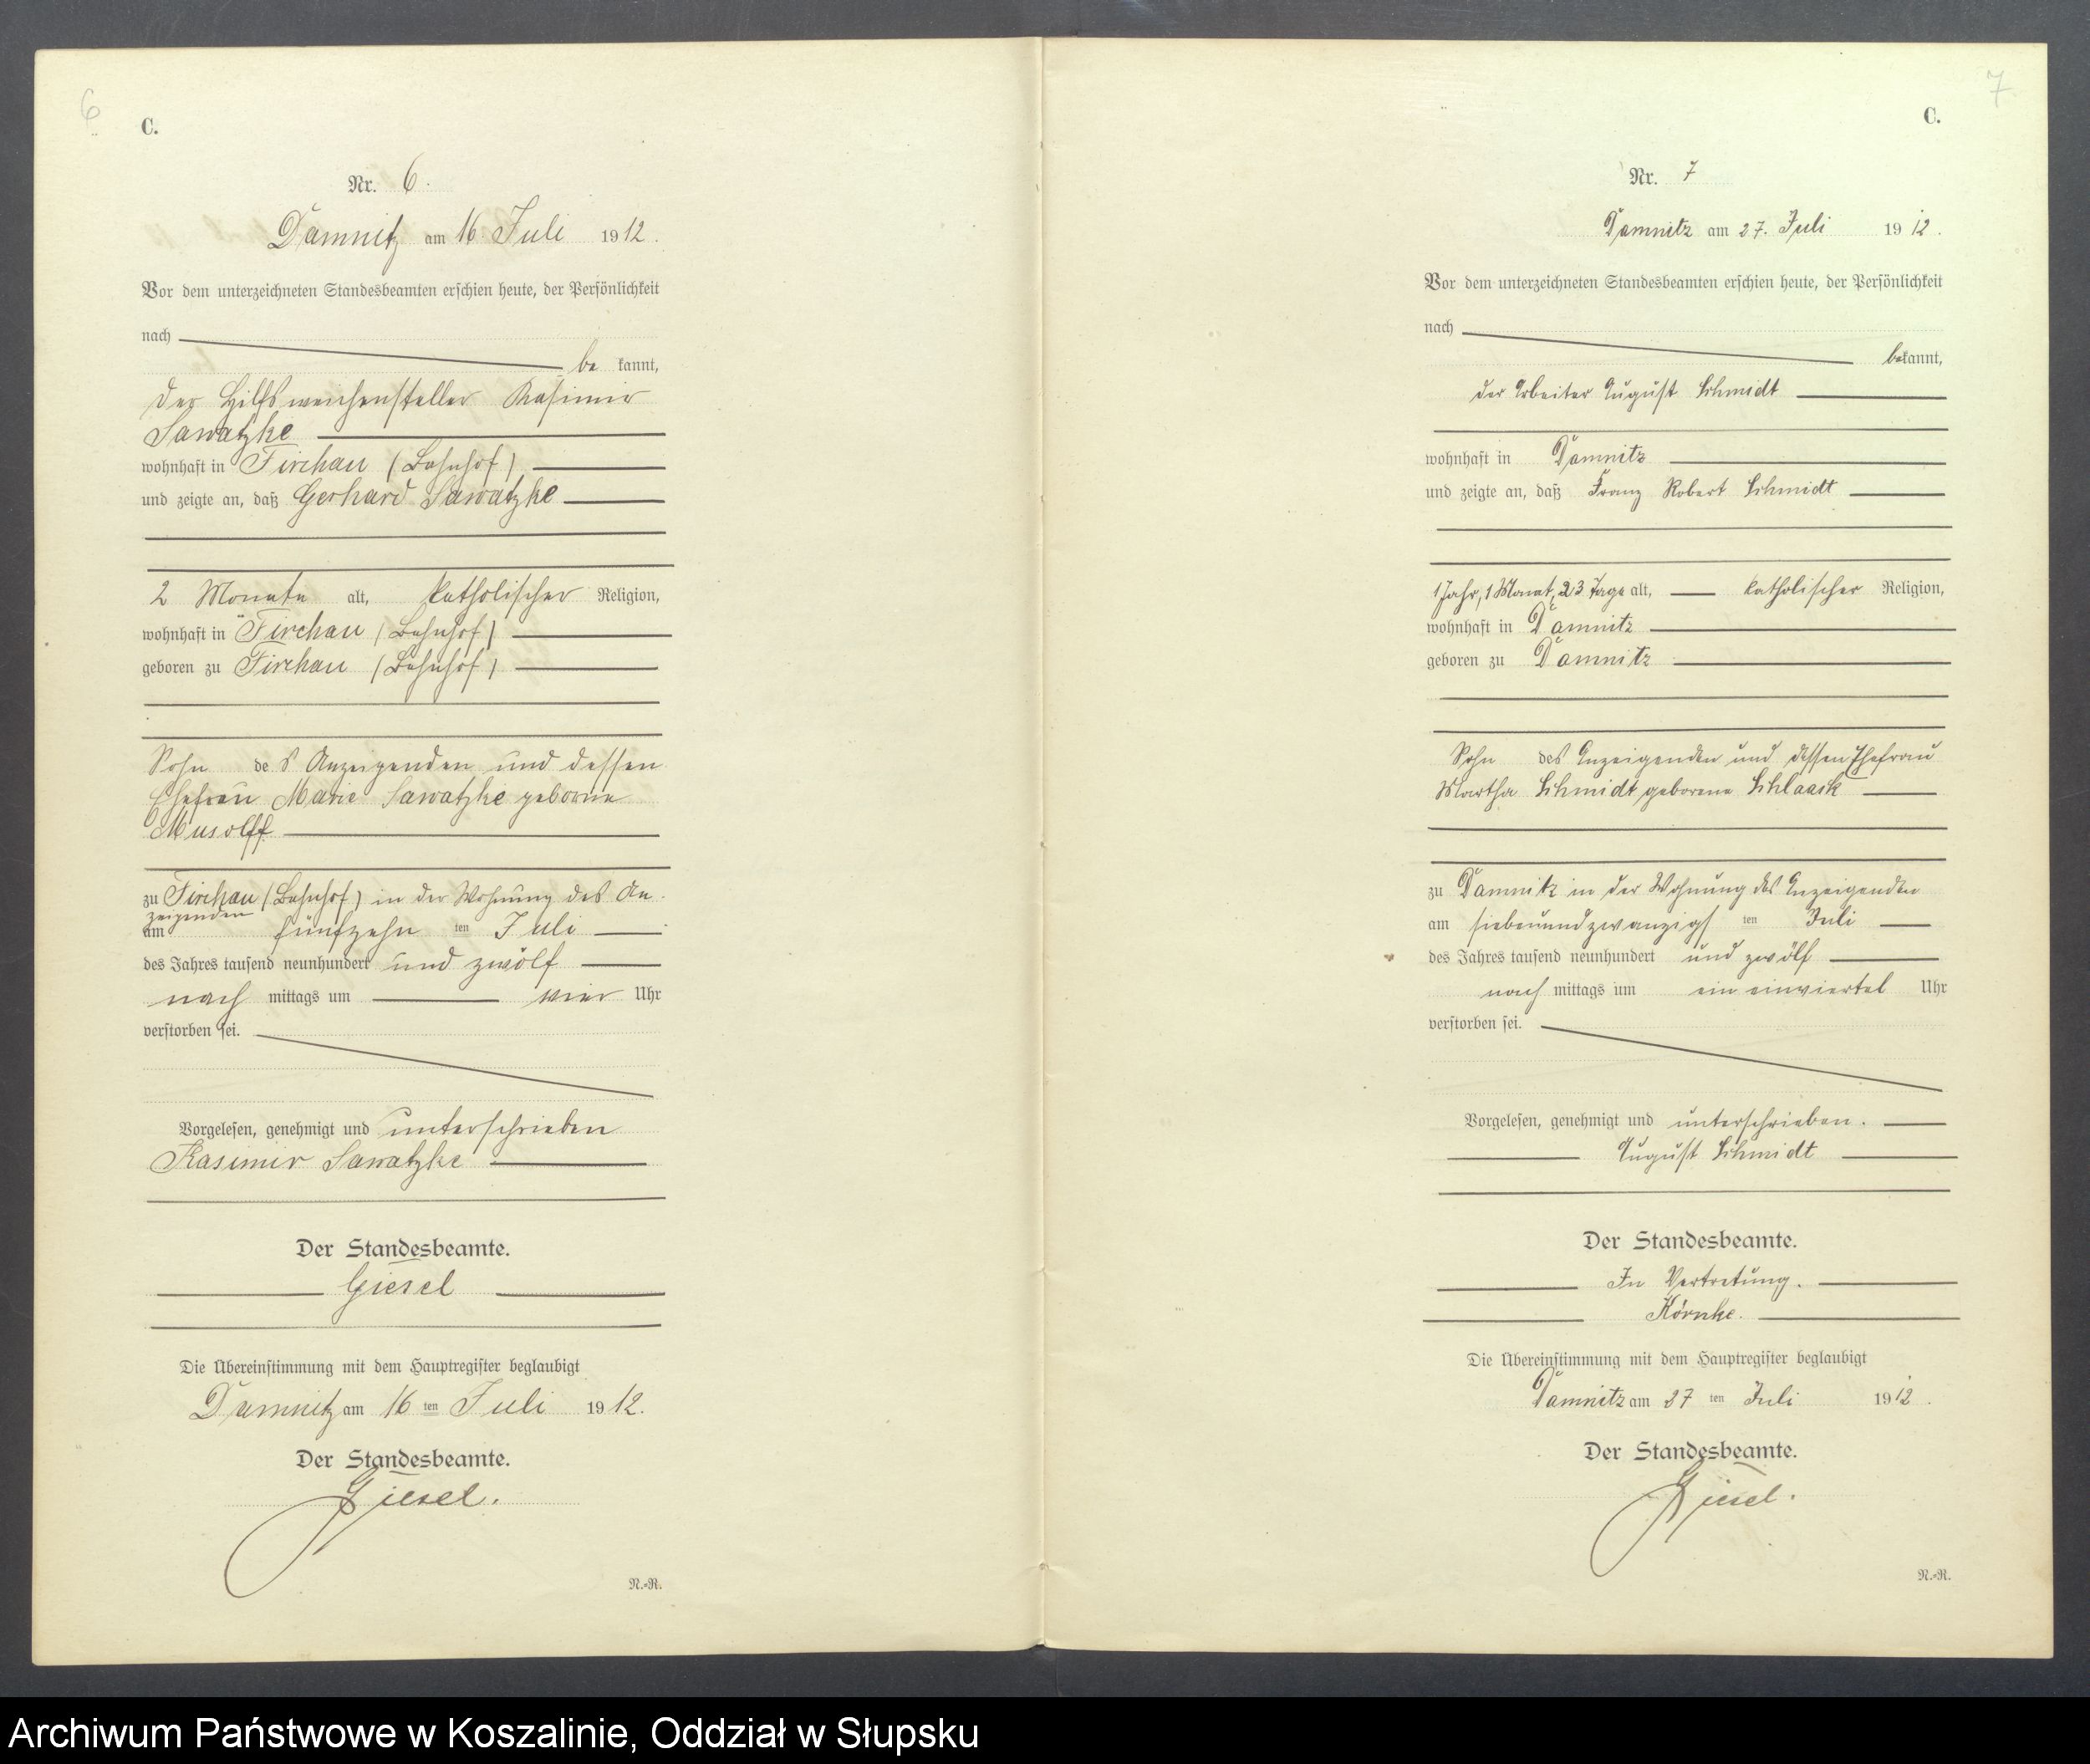 6
C.
Nr. 6.
Damnitz am 16. Juli 1912.
Vor dem unterzeichneten Standesbeamten erschien heute, der Persönlichkeit
nach
be kannt,
der Hilfsweichensteller Kasimir
Sawatzke
wohnhaft in Firchau (Bahnhof)
und zeigte an, daß Gerhard Sawatzke
2 Monate alt, katholischer Religion,
wohnhaft in Firchau (Bahnhof)
geboren zu Firchau (Bahnhof)
Sohn des Anzeigenden und dessen
Ehefrau Marie Sawatzke geborne
Musolff
zu Firchau (Bahnhof) in der Wohnung des An-
zeigenden
am fünfzehn ten Juli
des Jahres tausend neunhundert und zwölf
nach mittags um vier Uhr
verstorben sei.
Vorgelesen, genehmigt und unterschrieben
Kasimir Sawatzke
Der Standesbeamte.
Giesel
Die Übereinstimmung mit dem Hauptregister beglaubigt
Damnitz am 16 ten Juli 1912.
Der Standesbeamte.
Giesel.
N.-R.
7
C.
Nr. 7
Damnitz am 27. Juli 1912.
Vor dem unterzeichneten Standesbeamten erschien heute, der Persönlichkeit
nach
bekannt,
der Arbeiter August Schmidt
wohnhaft in Damnitz
und zeigte an, daß Franz Robert Schmidt
1 Jahr, 1 Monat, 23 Tage alt, katholischer Religion,
wohnhaft in Damnitz
geboren zu Damnitz
Sohn des Anzeigenden und dessen Ehefrau
Martha Schmidt geborene Schlaack
zu Damnitz in der Wohnung des Anzeigenden
am siebenundzwanzigs ten Juli
des Jahres tausend neunhundert und zwölf
nach mittags um ein einviertel Uhr
verstorben sei.
Vorgelesen, genehmigt und unterschrieben.
August Schmidt
Der Standesbeamte.
In Vertretung.
Körnke.
Die Übereinstimmung mit dem Hauptregister beglaubigt
Damnitz am 27 ten Juli 1912.
Der Standesbeamte.
Giesel.
N.-R.
Archiwum Państwowe w Koszalinie, Oddział w Słupsku